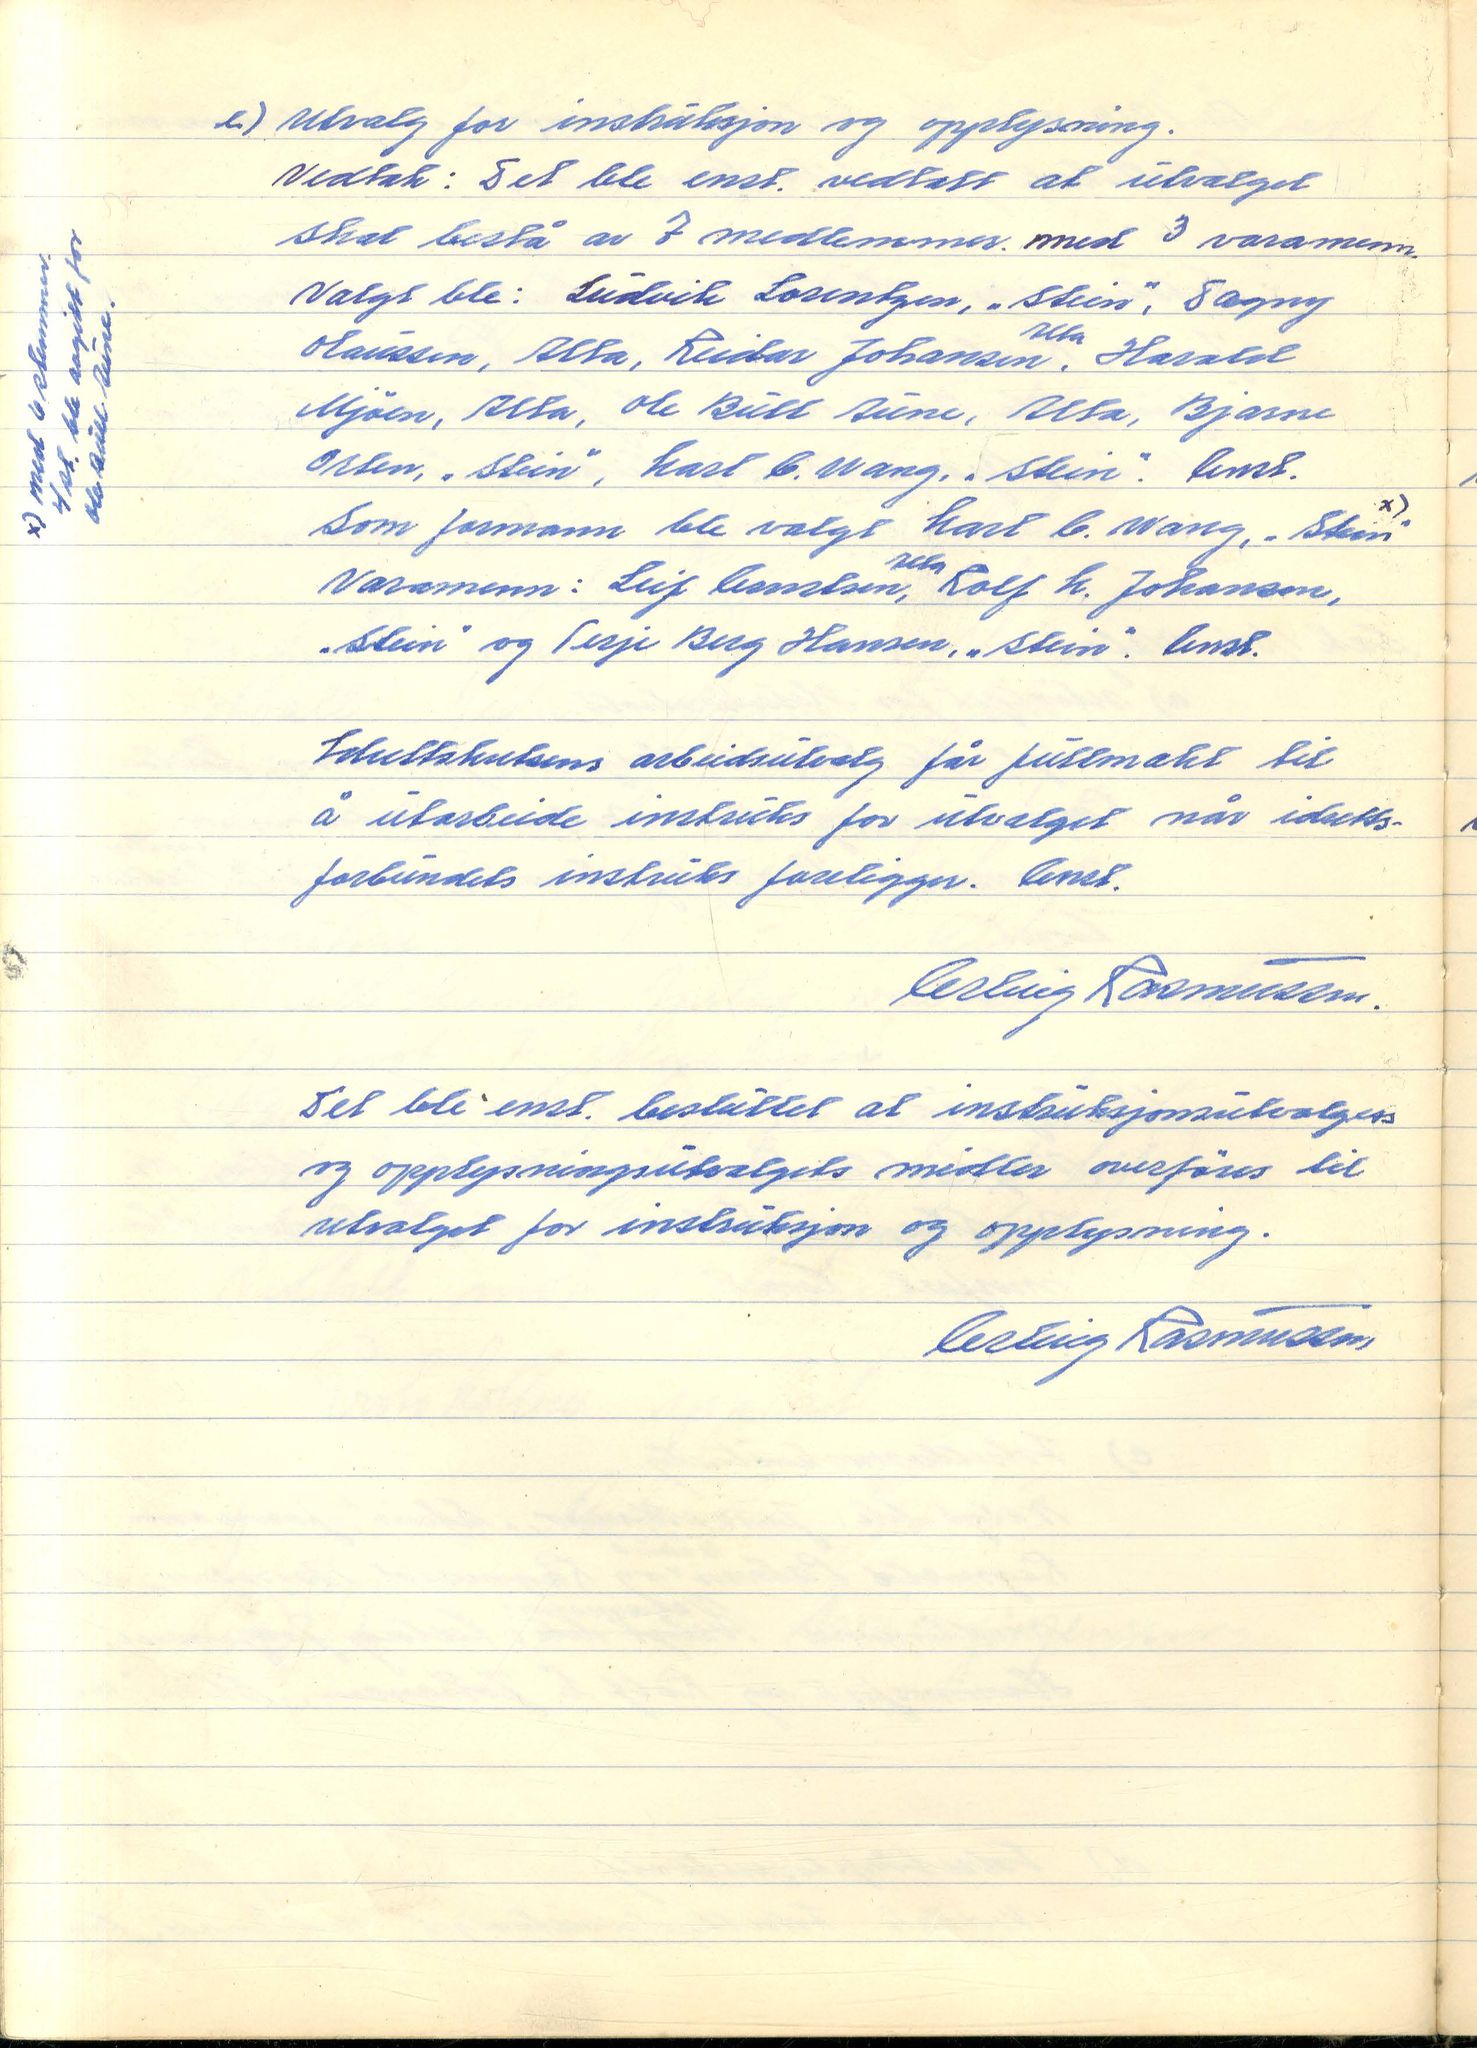 e) Utvalg for instruksjon og opplysning.
Vedtak: Det ble enst. vedtatt at utvalget
skal bestå av 7 medlemmer. med 3 varamenn.
Valgt ble: Ludvik Lorentzen, „Stein", Dagny
Olaussen, Ulla, Reidar Johansen Ulla, Harald
Mjöen, Ulla, Ole Bull Tune, Ulla, Bjarne
Osten, „Stein", Karl E. Wang, „Stein". Enst.
Som formann ble valgt Karl E. Wang, „Stein" x)
Varamenn: Leif Evertsen, Ulla Rolf K. Johansen,
„Stein" og Terje Berg Hansen, „Stein". Enst.
Idrettskretsens arbeidsutvalg får fullmakt til
å utarbeide instruks for utvalget når idretts-
forbundets instruks foreligger. Enst.
Erling Rasmussen.
Det ble enst. besluttet at instruksjonsutvalgets
og opplysningsutvalgets midler overföres til
utvalget for instruksjon og opplysning.
Erling Rasmussen
x) med 6 stemmer.
4 st. ble avgitt for
Ole Bull Tune.